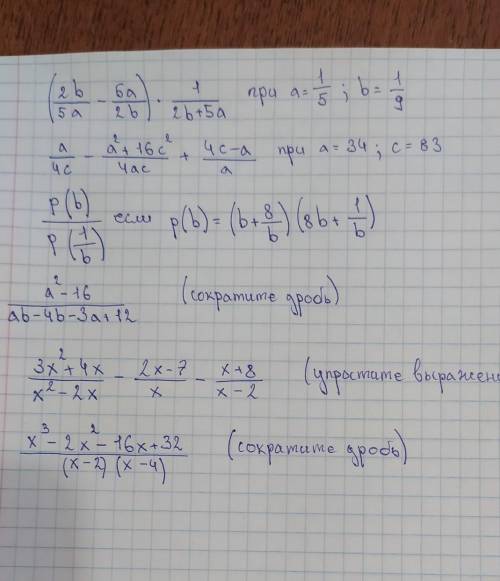 (2b/5a - 5a/2b) · 1/(2b+5a) при a=1/5 ; b=1/9
a/4c - (a²+16c²)/4ac + (4c-a)/a при a=34 ; c=83
p(b)/p(1/b) если p(b)=(b+8/b)(8b+1/b)
(a²-16)/(ab-4b-3a+12) (сократите дробь)
(3x²+4x)/(x²-2x) - (2x-7)/x - (x+8)/(x-2) (упростите выражен
(x³-2x²-16x+32)/((x-2)(x-4)) (сократите дробь)